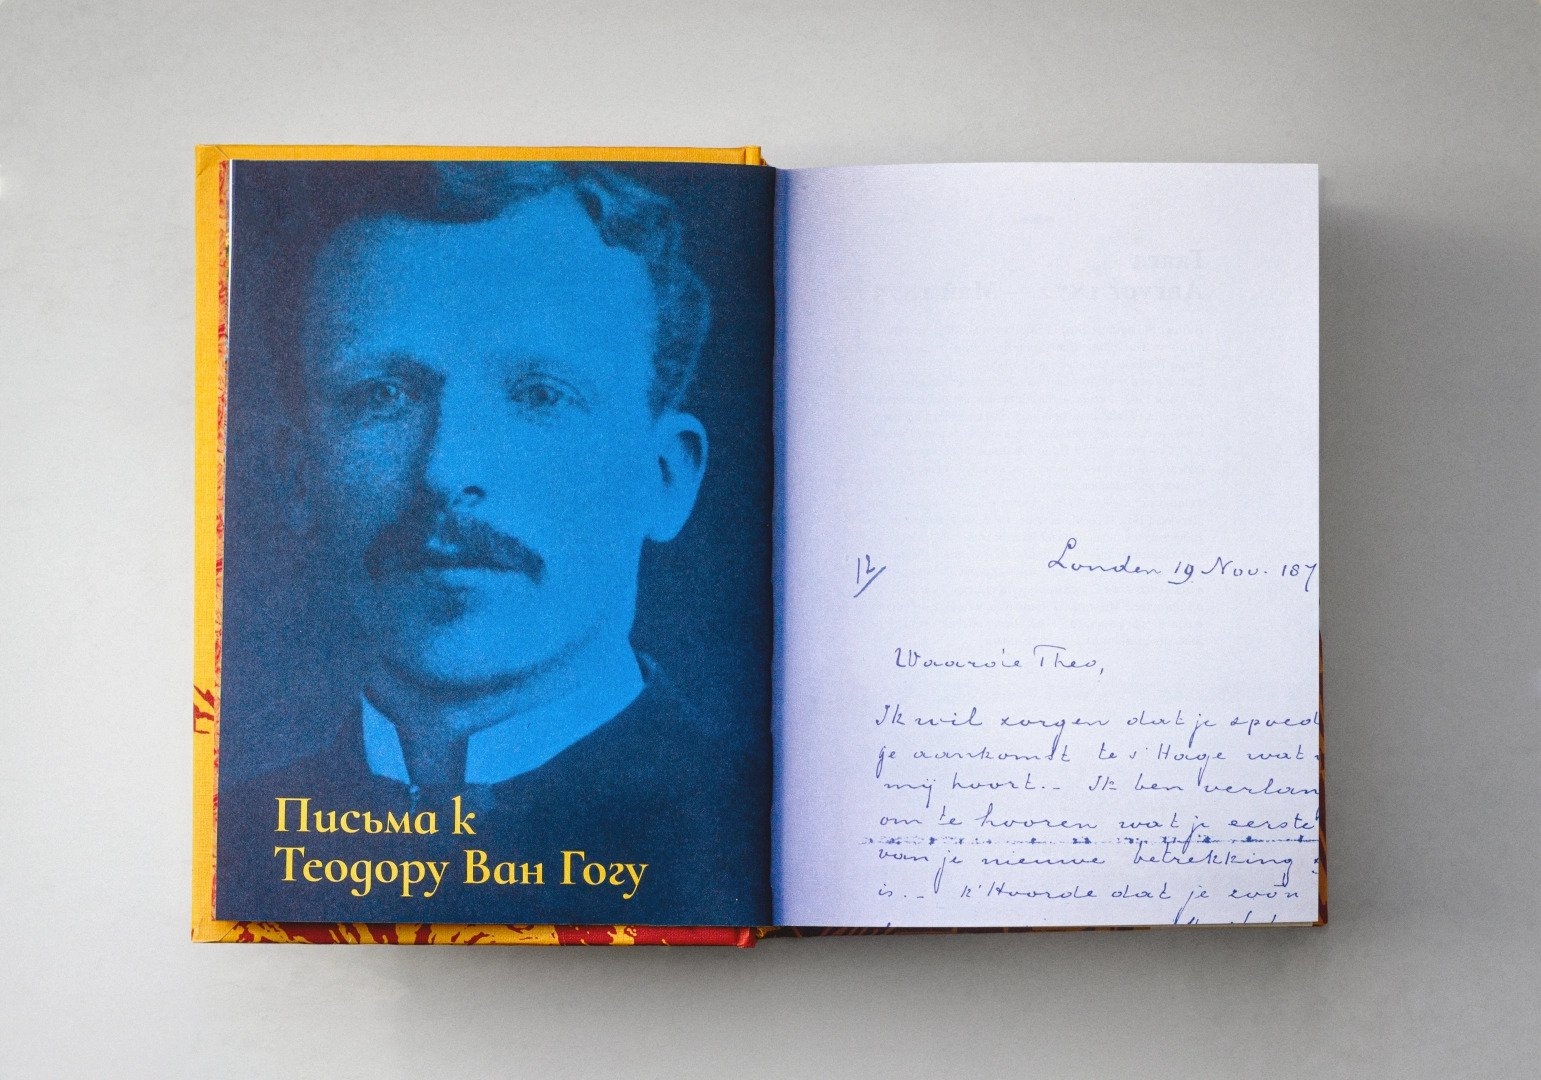 Письма к
Теодору Ван Гогу
12/
Londen 19 Nov. 187
Waarde Theo,
Ik wil zorgen dat je spoed
ge aankomst te s'Hage wat
mij hoort._ Ik ben verlan
om te hooren wat je eerste
van je nieuwe betrekking
is._ k'Hoorde dat je zoo'n